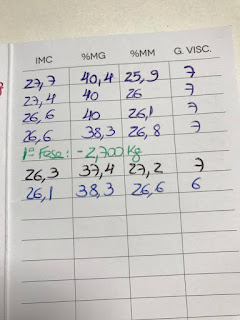 IMC %MG %MM G. VISC.
27,7 40,4 25,9 7
27,4 40 26 7
26,6 40 26,1 7
26,6 38,3 26,8 7
1ª Fase: - 2,700 Kg
26,3 37,4 27,2 7
26,1 38,3 26,6 6